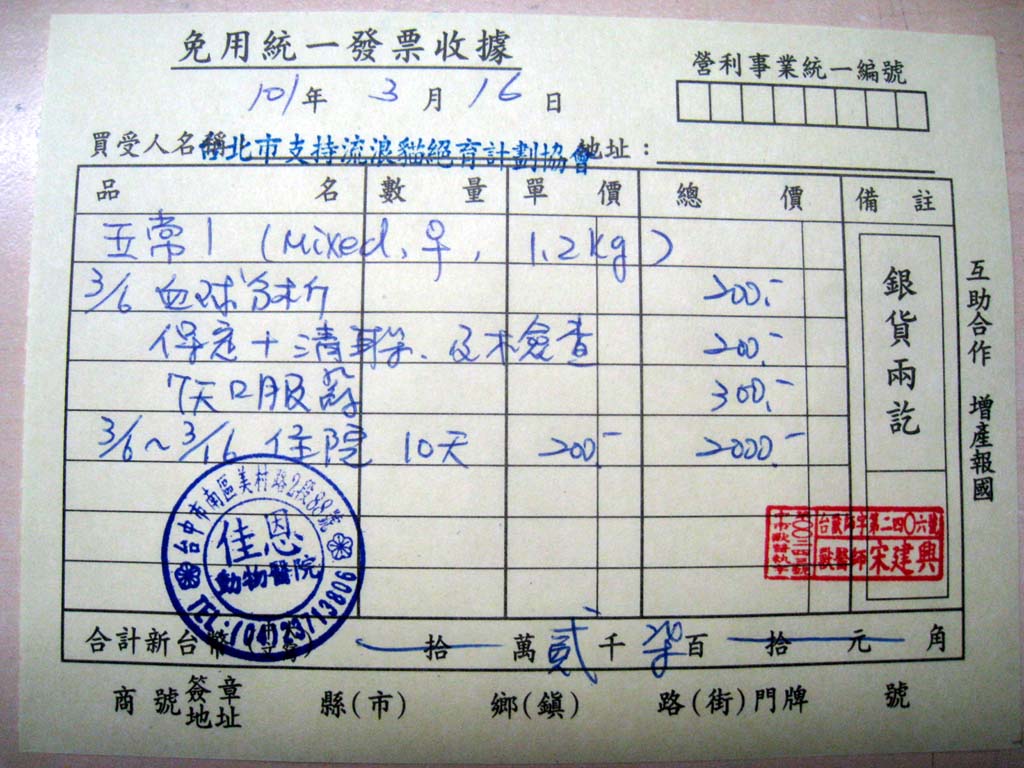 免用統一發票收據
營利事業統一編號
101年 3月 16日
買受人名稱 台北市支持流浪貓絕育計劃協會 地址：
品名 數量 單價 總價 備註
五常1 (Mixed, ♀, 1.2kg)
3/6 血球分析 200.-
保定+清耳 及 檢查 200.-
7天口服藥 300.-
3/6~3/16 住院 10天 200.- 2000.-
銀貨兩訖
互助合作 增產報國
台中市南區美村路2段88號
佳恩
動物醫院
TEL:(04)23713806
台獸師字第二四〇六號
獸醫師宋建興
合計新台幣 拾 萬 貳 千 柒 百 拾 元 角
商號簽章地址 縣(市) 鄉(鎮) 路(街)門牌 號